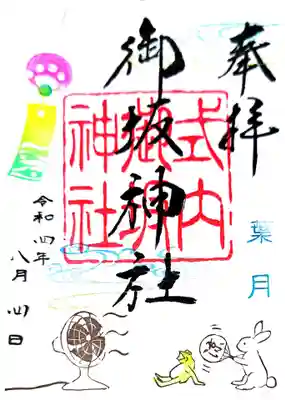 奉拝
御坂神社
式内
御坂
神社
葉月
令和四年
八月四日